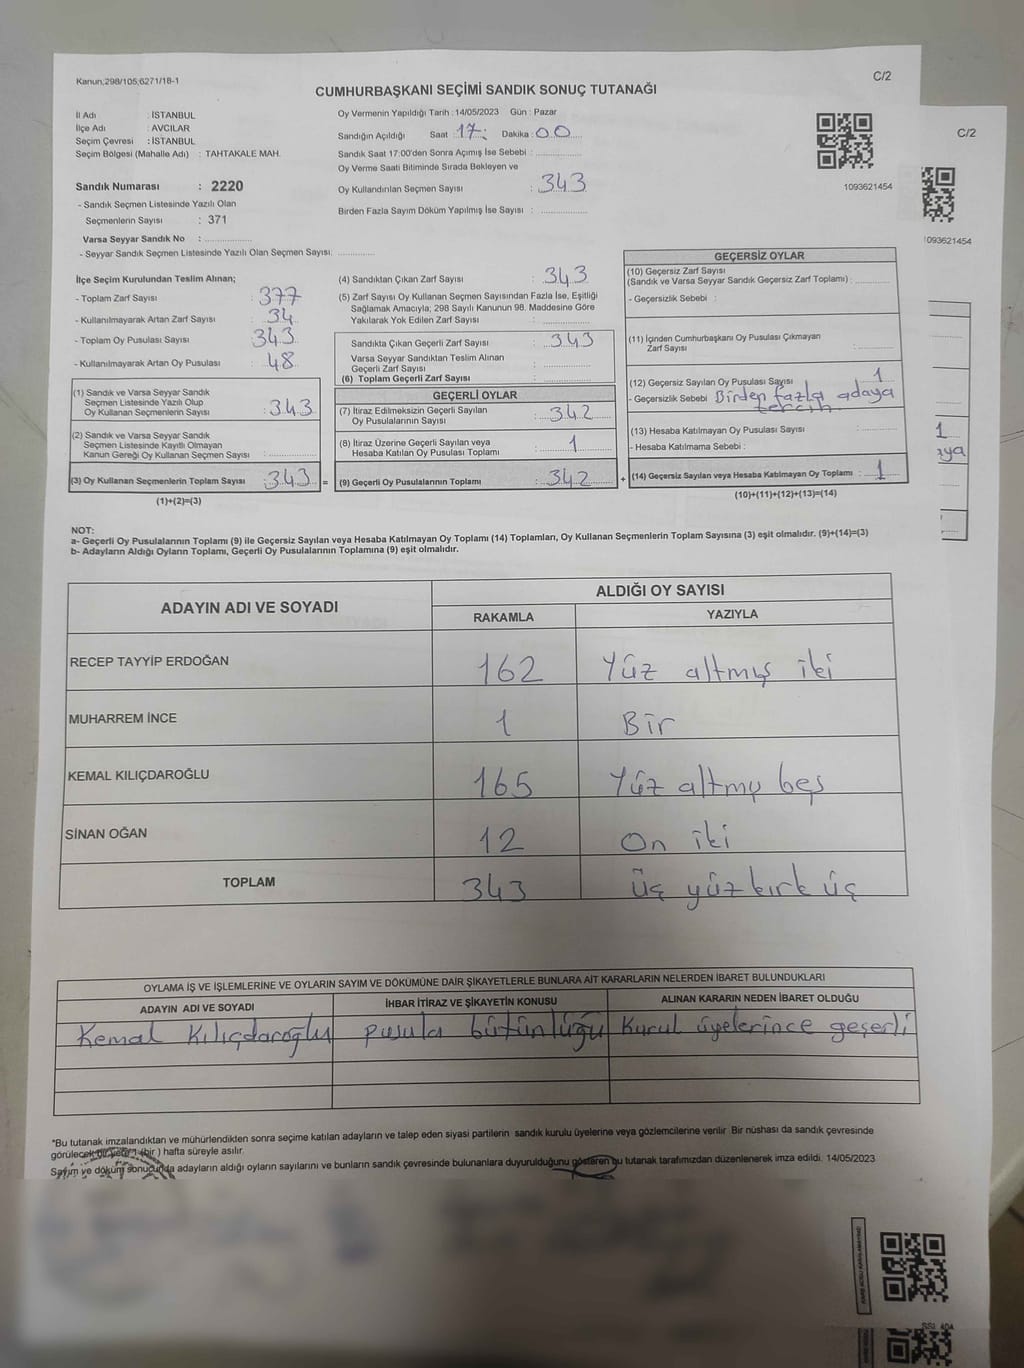 Kanun;298/105;6271/18-1
C/2
CUMHURBAŞKANI SEÇİMİ SANDIK SONUÇ TUTANAĞI
İl Adı : İSTANBUL
İlçe Adı : AVCILAR
Seçim Çevresi : İSTANBUL
Seçim Bölgesi (Mahalle Adı) : TAHTAKALE MAH.
Sandık Numarası : 2220
- Sandık Seçmen Listesinde Yazılı Olan
Seçmenlerin Sayısı : 371
Varsa Seyyar Sandık No : ...............
- Seyyar Sandık Seçmen Listesinde Yazılı Olan Seçmen Sayısı: ............
Oy Vermenin Yapıldığı Tarih : 14/05/2023 Gün : Pazar
Sandığın Açıldığı Saat 17: Dakika: 00
Sandık Saat 17:00'den Sonra Açımış İse Sebebi : ...............
Oy Verme Saati Bitiminde Sırada Bekleyen ve
Oy Kullandırılan Seçmen Sayısı : 343
Birden Fazla Sayım Döküm Yapılmış İse Sayısı : ...............
1093621454
C/2
1093621454
İlçe Seçim Kurulundan Teslim Alınan;
- Toplam Zarf Sayısı : 377
- Kullanılmayarak Artan Zarf Sayısı : 34
- Toplam Oy Pusulası Sayısı : 343
- Kullanılmayarak Artan Oy Pusulası : 48
(1) Sandık ve Varsa Seyyar Sandık
Seçmen Listesinde Yazılı Olup
Oy Kullanan Seçmenlerin Sayısı : 343
(2) Sandık ve Varsa Seyyar Sandık
Seçmen Listesinde Kayıtlı Olmayan
Kanun Gereği Oy Kullanan Seçmen Sayısı : ............
(3) Oy Kullanan Seçmenlerin Toplam Sayısı : 343 =
(1)+(2)=(3)
(4) Sandıktan Çıkan Zarf Sayısı : 343
(5) Zarf Sayısı Oy Kullanan Seçmen Sayısından Fazla İse, Eşitliği
Sağlamak Amacıyla; 298 Sayılı Kanunun 98. Maddesine Göre
Yakılarak Yok Edilen Zarf Sayısı : ............
Sandıkta Çıkan Geçerli Zarf Sayısı : 343
Varsa Seyyar Sandıktan Teslim Alınan
Geçerli Zarf Sayısı : ............
(6) Toplam Geçerli Zarf Sayısı : ............
GEÇERLİ OYLAR
(7) İtiraz Edilmeksizin Geçerli Sayılan
Oy Pusulalarının Sayısı : 342
(8) İtiraz Üzerine Geçerli Sayılan veya
Hesaba Katılan Oy Pusulası Toplamı : 1
(9) Geçerli Oy Pusulalarının Toplamı : 342 +
GEÇERSİZ OYLAR
(10) Geçersiz Zarf Sayısı
(Sandık ve Varsa Seyyar Sandık Geçersiz Zarf Toplamı) : ............
- Geçersizlik Sebebi :
(11) İçinden Cumhurbaşkanı Oy Pusulası Çıkmayan
Zarf Sayısı : ............
(12) Geçersiz Sayılan Oy Pusulası Sayısı : 1
- Geçersizlik Sebebi Birden fazla adaya
tercih
(13) Hesaba Katılmayan Oy Pusulası Sayısı : ............
- Hesaba Katılmama Sebebi :
(14) Geçersiz Sayılan veya Hesaba Katılmayan Oy Toplamı : 1
(10)+(11)+(12)+(13)=(14)
NOT:
a- Geçerli Oy Pusulalarının Toplamı (9) ile Geçersiz Sayılan veya Hesaba Katılmayan Oy Toplamı (14) Toplamları, Oy Kullanan Seçmenlerin Toplam Sayısına (3) eşit olmalıdır. (9)+(14)=(3)
b- Adayların Aldığı Oyların Toplamı, Geçerli Oy Pusulalarının Toplamına (9) eşit olmalıdır.
ADAYIN ADI VE SOYADI ALDIĞI OY SAYISI
RAKAMLA YAZIYLA
RECEP TAYYİP ERDOĞAN 162 Yüz altmış iki
MUHARREM İNCE 1 Bir
KEMAL KILIÇDAROĞLU 165 Yüz altmış beş
SİNAN OĞAN 12 On iki
TOPLAM 343 üç yüz kırk üç
OYLAMA İŞ VE İŞLEMLERİNE VE OYLARIN SAYIM VE DÖKÜMÜNE DAİR ŞİKAYETLERLE BUNLARA AİT KARARLARIN NELERDEN İBARET BULUNDUKLARI
ADAYIN ADI VE SOYADI İHBAR İTİRAZ VE ŞİKAYETİN KONUSU ALINAN KARARIN NEDEN İBARET OLDUĞU
Kemal Kılıçdaroğlu pusula bütünlüğü Kurul üyelerince geçerli
*Bu tutanak imzalandıktan ve mühürlendikten sonra seçime katılan adayların ve talep eden siyasi partilerin sandık kurulu üyelerine veya gözlemcilerine verilir. Bir nüshası da sandık çevresinde
görülecek bir yere 1 (bir ) hafta süreyle asılır.
Sayım ve döküm sonucunda adayların aldığı oyların sayılarını ve bunların sandık çevresinde bulunanlara duyurulduğunu gösteren bu tutanak tarafımızdan düzenlenerek imza edildi. 14/05/2023